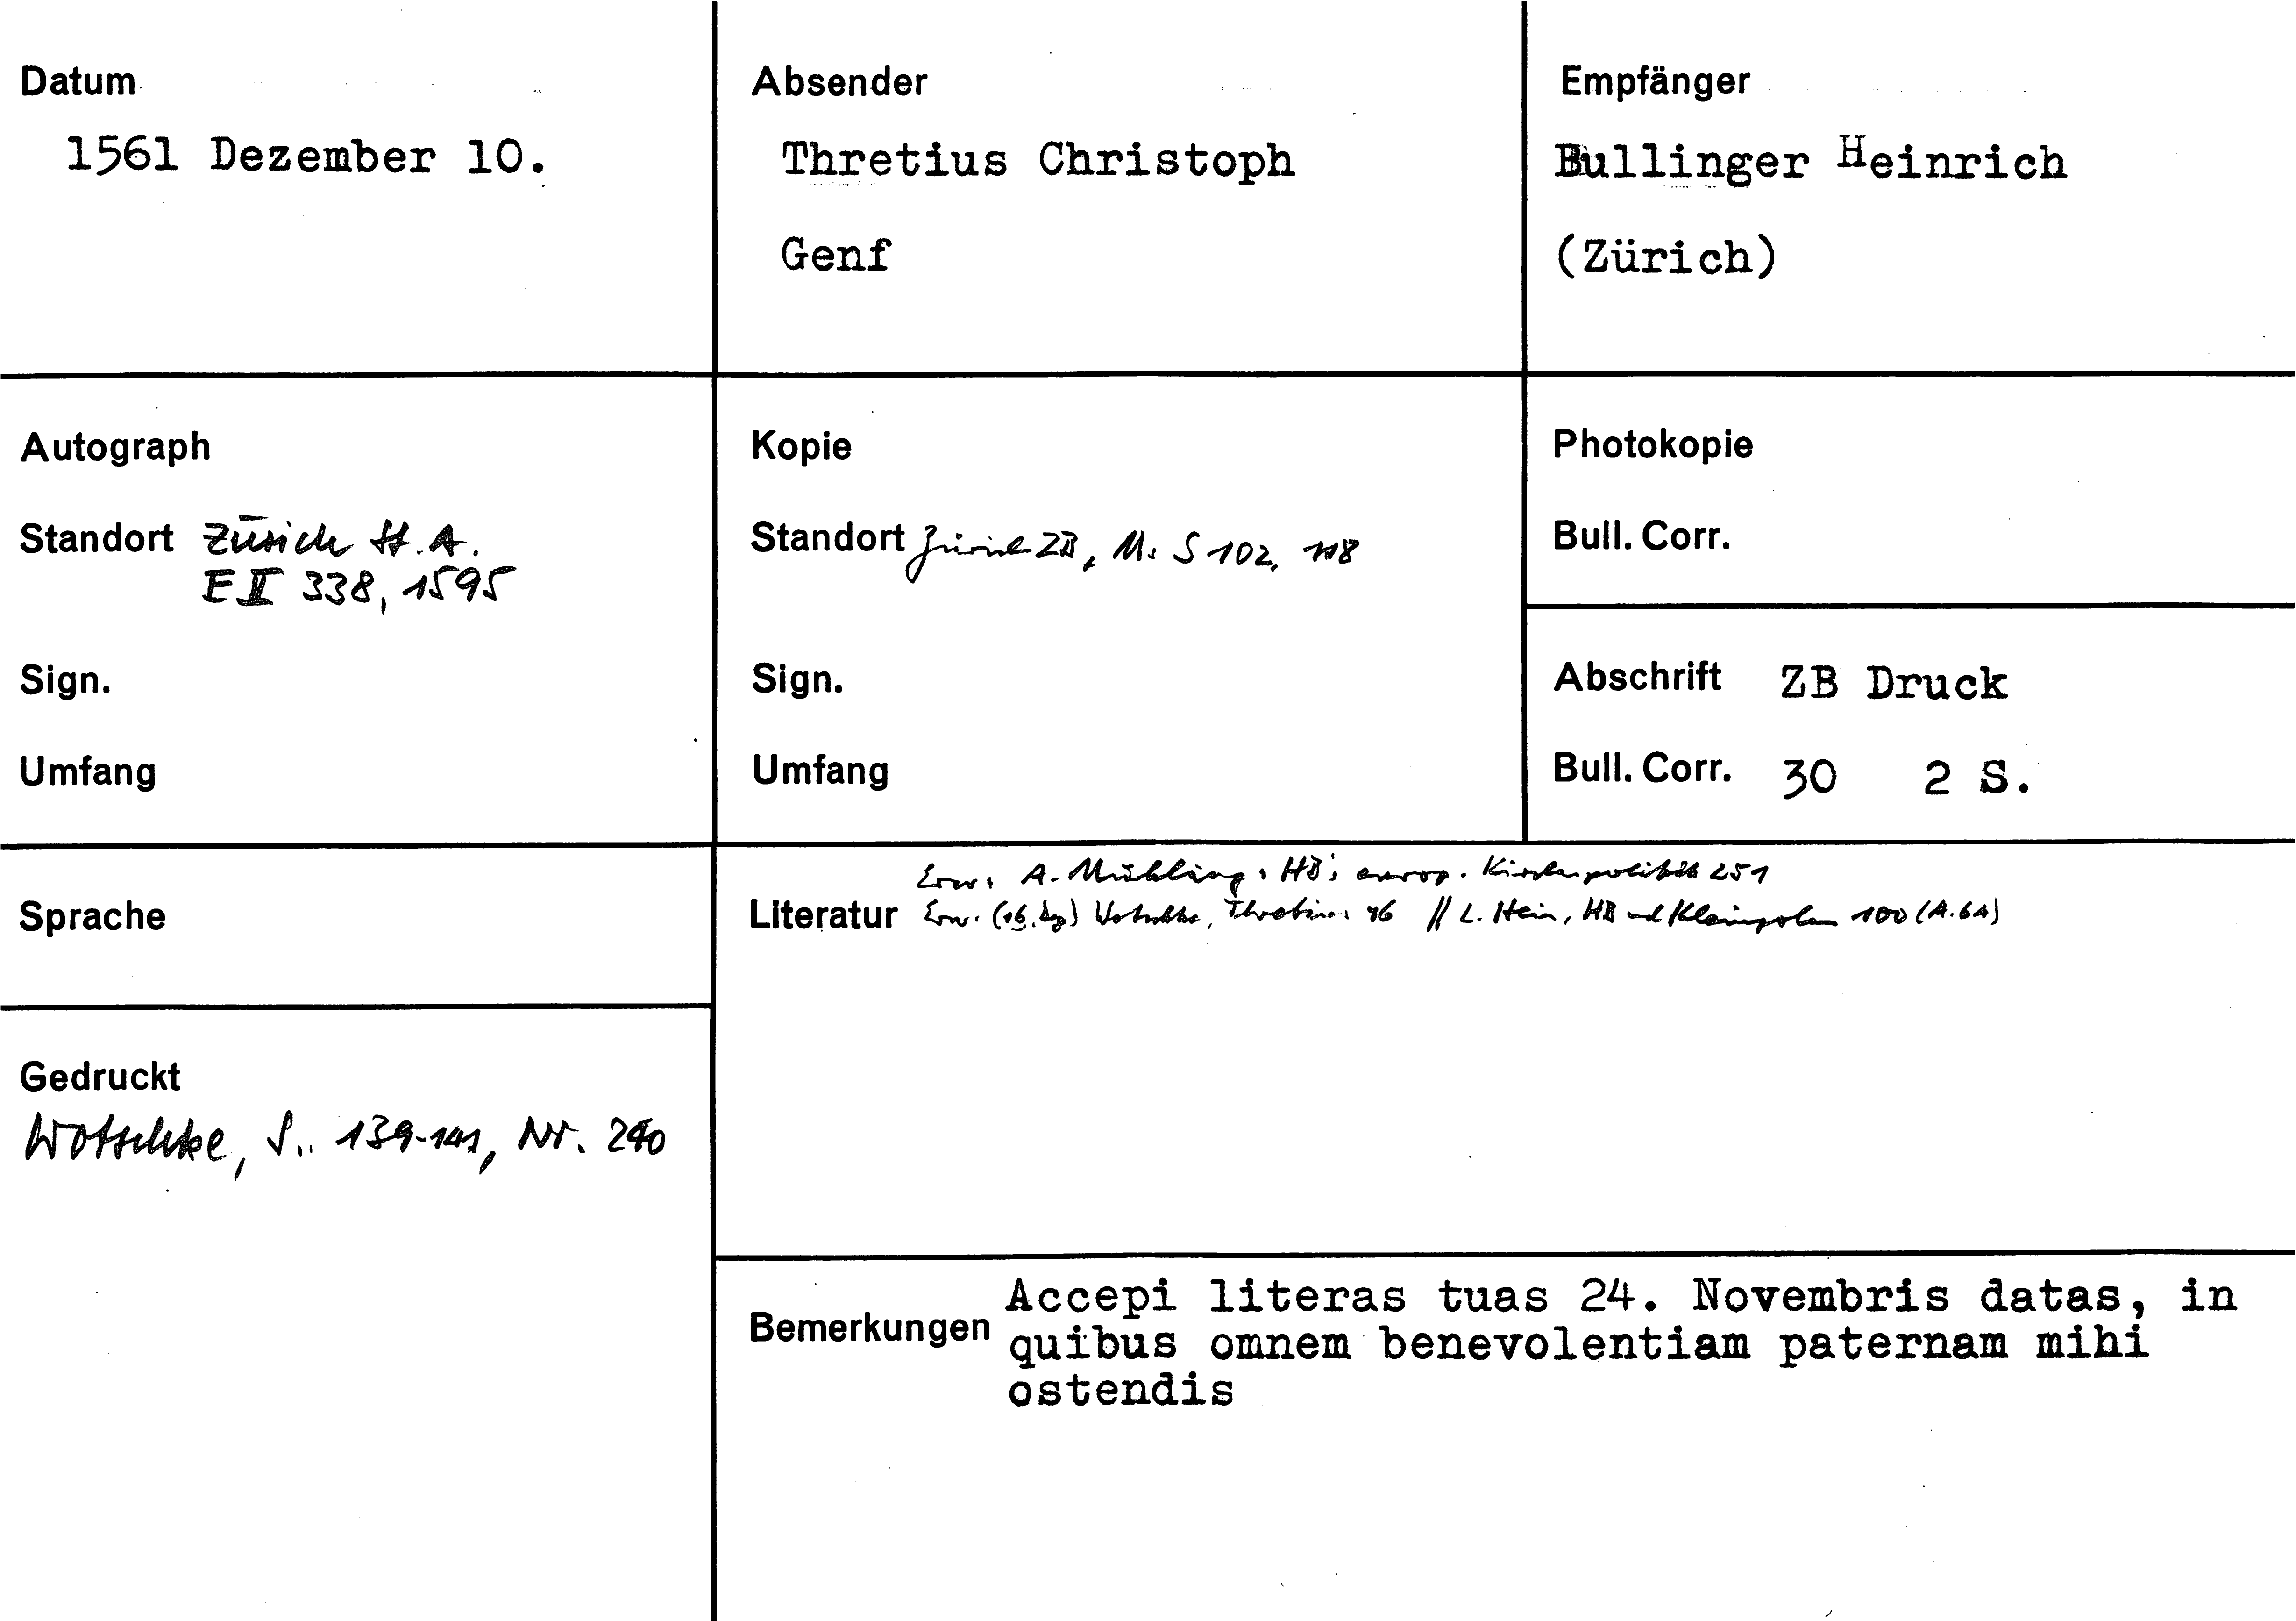 Datum
1561 Dezember 10.
Absender
Thretius Christoph
Genf
Empfänger
Bullinger Heinrich
(Zürich)
Autograph
Standort Zürich St.A.
E II 338, 1595
Sign.
Umfang
Kopie
Standort Zürich ZB, Ms S 102, 118
Sign.
Umfang
Photokopie
Bull. Corr.
Abschrift ZB Druck
Bull. Corr. 30 2 S.
Sprache
Gedruckt
Wotschke, S. 139-141, Nr. 240
Erw. A. Mühling, HBs europ. Kirchenpolitik 251
Literatur Erw. (16. Dez) Wotschke, Thretius 46 // L. Hein, HB und Kleinpolen 100 (A. 64)
Bemerkungen Accepi literas tuas 24. Novembris datas, in
quibus omnem benevolentiam paternam mihi
ostendis